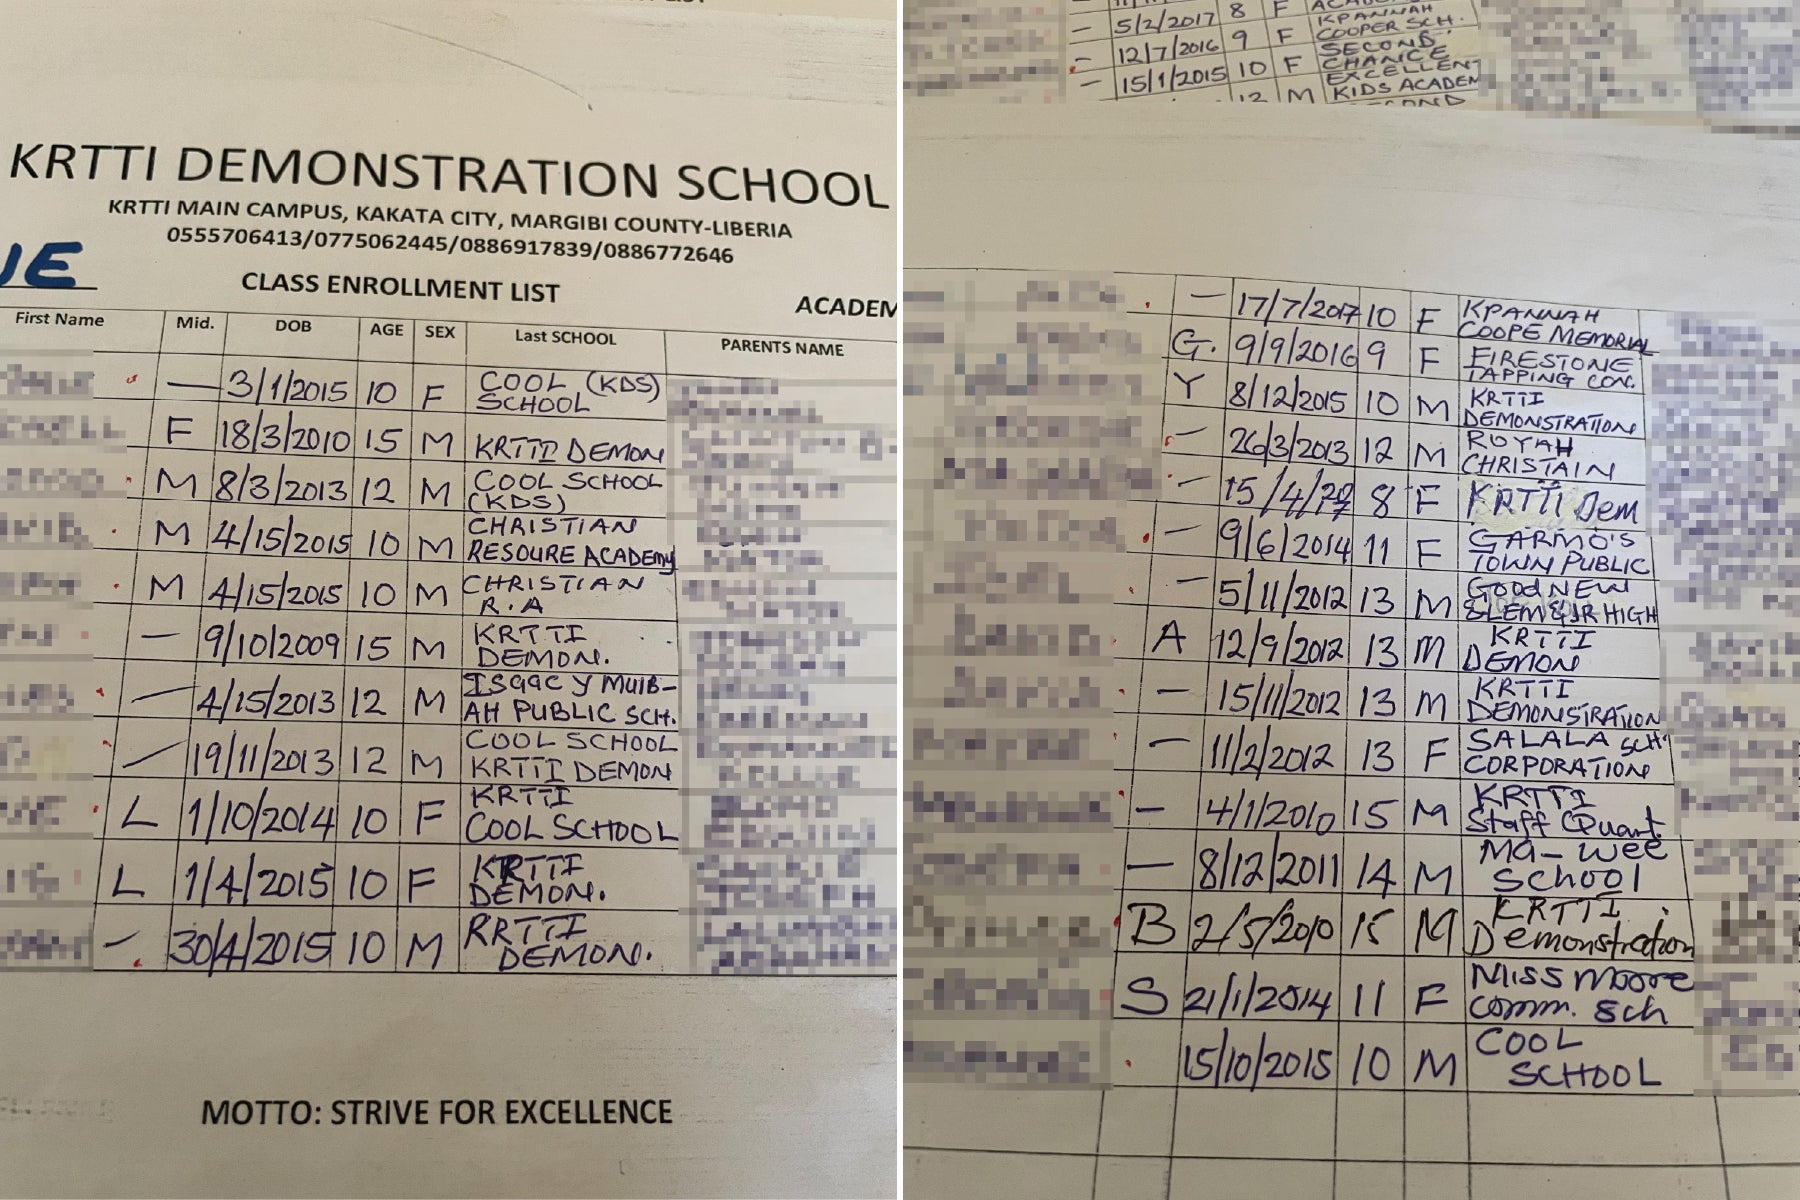 KRTTI DEMONSTRATION SCHOOL
KRTTI MAIN CAMPUS, KAKATA CITY, MARGIBI COUNTY-LIBERIA
0555706413/0775062445/0886917839/0886772646
CLASS ENROLLMENT LIST
ACADEM
First Name Mid. DOB AGE SEX Last SCHOOL PARENTS NAME
— 3/1/2015 10 F COOL (KDS)
SCHOOL
F 18/3/2010 15 M KRTTI DEMON
M 8/3/2013 12 M COOL SCHOOL
(KDS)
M 4/15/2015 10 M CHRISTIAN
RESOURE ACADEMY
M 4/15/2015 10 M CHRISTIAN
R.A
— 9/10/2009 15 M KRTTI
DEMON.
— 4/15/2013 12 M ISaac Y MUIB-
AH PUBLIC SCH.
— 19/11/2013 12 M COOL SCHOOL
KRTTI DEMON
L 1/10/2014 10 F KRTTI
COOL SCHOOL
L 1/4/2015 10 F KRTTI
DEMON.
— 30/4/2015 10 M RRTTI
DEMON.
MOTTO: STRIVE FOR EXCELLENCE
— 5/2/2017 8 F KPANNAH
COOPER SCH.
— 12/7/2016 9 F SECOND
CHANCE
— 15/1/2015 10 F EXCELLENT
KIDS ACADEM
12 M
— 17/7/2017 10 F KPANNAH
COOPE MEMORIAL
G. 9/9/2016 9 F FIRESTONE
TAPPING CON.
Y 8/12/2015 10 M KRTTI
DEMONSTRATION
— 26/3/2013 12 M ROYAH
CHRISTAIN
— 15/4/ 8 F KRTTI Dem
— 9/6/2014 11 F GARMO'S
TOWN PUBLIC
— 5/11/2012 13 M Good NEW
ELEM & JR HIGH
A 12/9/2012 13 M KRTTI
DEMON
— 15/11/2012 13 M KRTTI
DEMONSTRATION
— 11/2/2012 13 F SALALA SCH
CORPORATION
— 4/1/2010 15 M KRTTI
Staff Quart.
— 8/12/2011 14 M Ma-wee
School
B 2/5/2010 15 M KRTTI
Demonstration
S 21/1/2014 11 F Miss Moore
Comm. Sch
15/10/2015 10 M COOL
SCHOOL